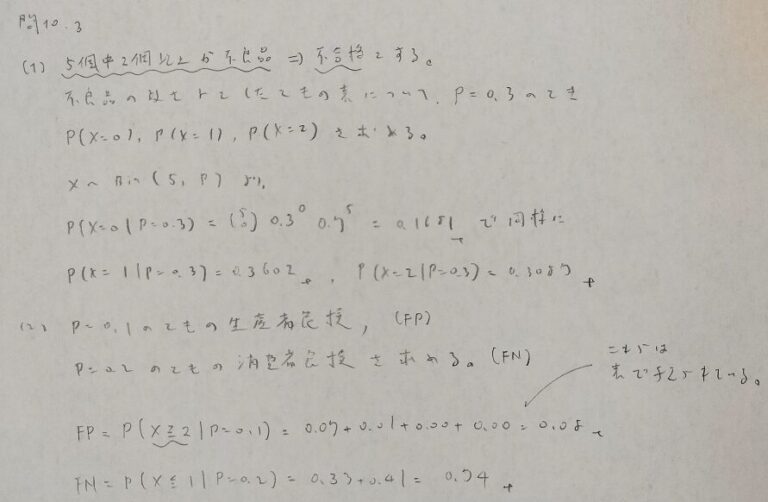 問10.3
(1) 5個中2個以上が不良品 ⇒ 不合格とする。
不良品の数をXとしたときの表について、P=0.3のとき
P(X=0), P(X=1), P(X=2) を求める。
X ~ Bin (5, P) より、
P(X=0|P=0.3) = (5 0) 0.3^0 0.7^5 = 0.1681 で同様に
P(X=1|P=0.3) = 0.3602, P(X=2|P=0.3) = 0.3087
(2) P=0.1のときの生産者危険, (FP)
P=0.2のときの消費者危険を求める。(FN)
これらは
表で与えられている。
FP = P(X≧2|P=0.1) = 0.07+0.01+0.00+0.00 = 0.08
FN = P(X≦1|P=0.2) = 0.33+0.41 = 0.74